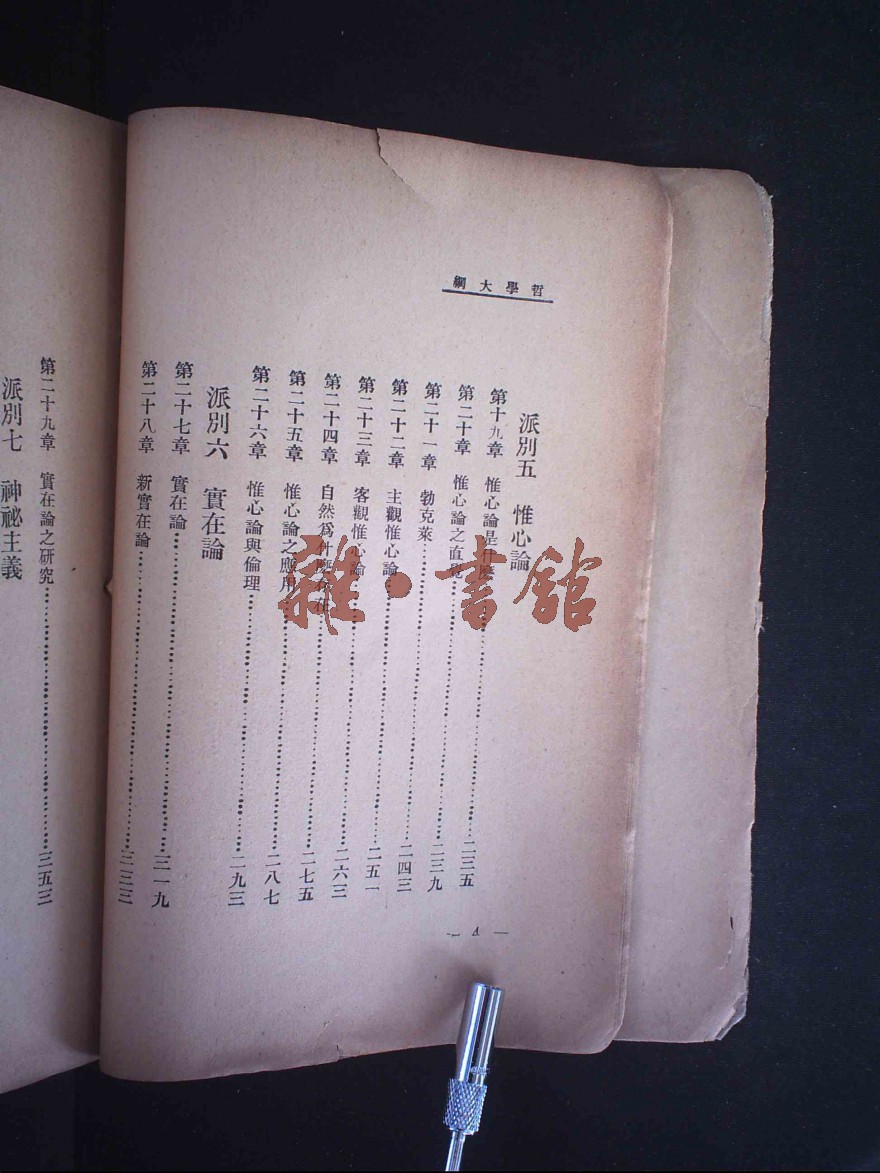 哲學大綱
派別五　惟心論
第十九章　惟心論是什麼……二三五
第二十章　惟心論之直覺……二三九
第二十一章　勃克萊……二四三
第二十二章　主觀惟心論……二五一
第二十三章　客觀惟心論……二六三
第二十四章　自然爲什麼存在……二七五
第二十五章　惟心論之應用……二八七
第二十六章　惟心論與倫理……二九三
派別六　實在論
第二十七章　實在論……三一九
第二十八章　新實在論……三三三
— 4 —
第二十九章　實在論之研究……三五三
派別七　神祕主義
雜·書館